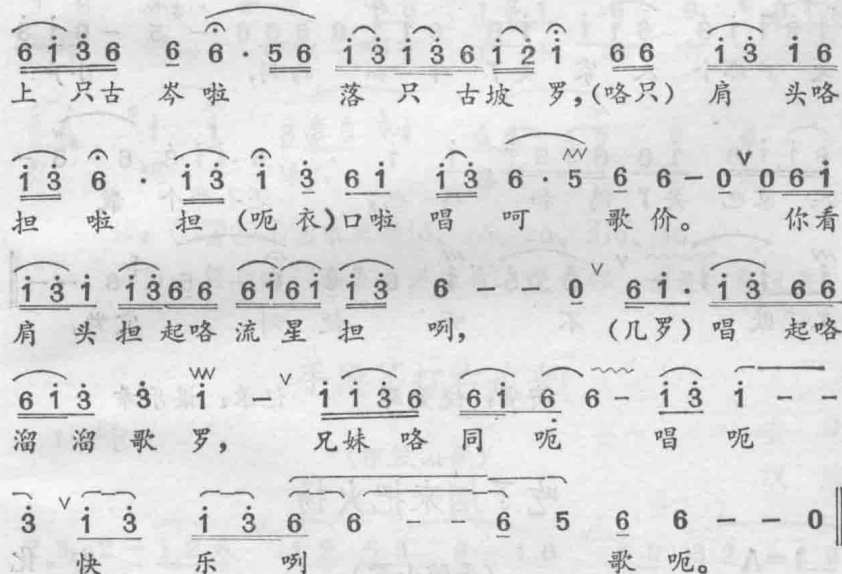 6 i̇ 3 6 6 6 · 5 6 i̇ 3̇ i̇ 3̇ 6 i̇ 2̇ i̇ 6 6 i̇ 3̇ i̇ 6
上 只古 岑 啦 落 只 古坡 罗,(咯只) 肩 头咯
i̇ 3̇ 6 · i̇ 3̇ i̇ 3̇ 6 i̇ i̇ 3̇ 6 · 5 6 6 – 0 ∨ 0 6 i̇
担 啦 担 (呃 衣)口啦 唱 呵 歌 价。 你看
i̇ 3̇ i̇ i̇ 3̇ 6 6 6 i̇ 6 i̇ i̇ 3̇ 6 – – 0 ∨ 6 i̇ · i̇ 3̇ 6 6
肩 头 担 起咯 流 星 担 咧, (几罗) 唱 起咯
6 i̇ 3̇ 3̇ i̇ – ∨ i̇ i̇ 3̇ 6 6 i̇ 6 6 – i̇ 3̇ i̇ – –
溜 溜 歌 罗, 兄妹 咯 同 呃 唱 呃
3̇ ∨ i̇ 3̇ i̇ 3̇ 6 6 – – 6 5 6 6 – – 0
快 乐 咧 歌 呃。